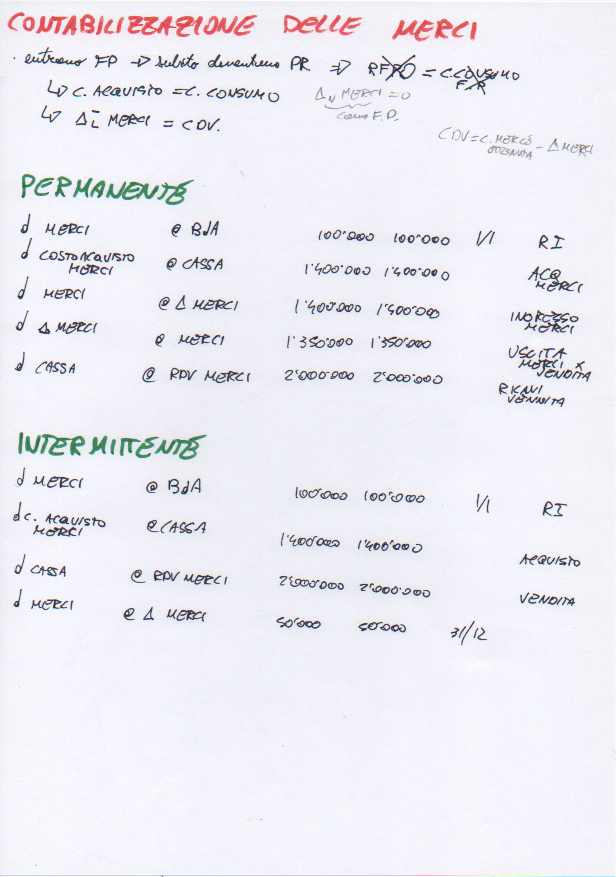 CONTABILIZZAZIONE DELLE MERCI
· entrano FP → subito diventano PR ⇒ RFRO = C. CONSUMO F.R
↳ C. ACQUISTO = C. CONSUMO
Δ MERCI = 0
come F.P.
↳ Δ MERCI = CDV.
CDV = C. MERCE - Δ MERCI
PERMANENTE
d MERCI @ BdA 100'000 100'000 1/1 RI
d COSTO ACQUISTO MERCI @ CASSA 1'400'000 1'400'000 ACQ MERCI
d MERCI @ Δ MERCI 1'400'000 1'400'000 INGRESSO MERCI
d Δ MERCI @ MERCI 1'350'000 1'350'000 USCITA MERCI X VENDITA
d CASSA @ RDV MERCI 2'000'000 2'000'000 RICAVI VENDITA
INTERMITTENTE
d MERCI @ BdA 100'000 100'000 1/1 RI
d C. ACQUISTO MERCI @ CASSA 1'400'000 1'400'000 ACQUISTO
d CASSA @ RDV MERCI 2'000'000 2'000'000 VENDITA
d MERCI @ Δ MERCI 50'000 50'000 31/12